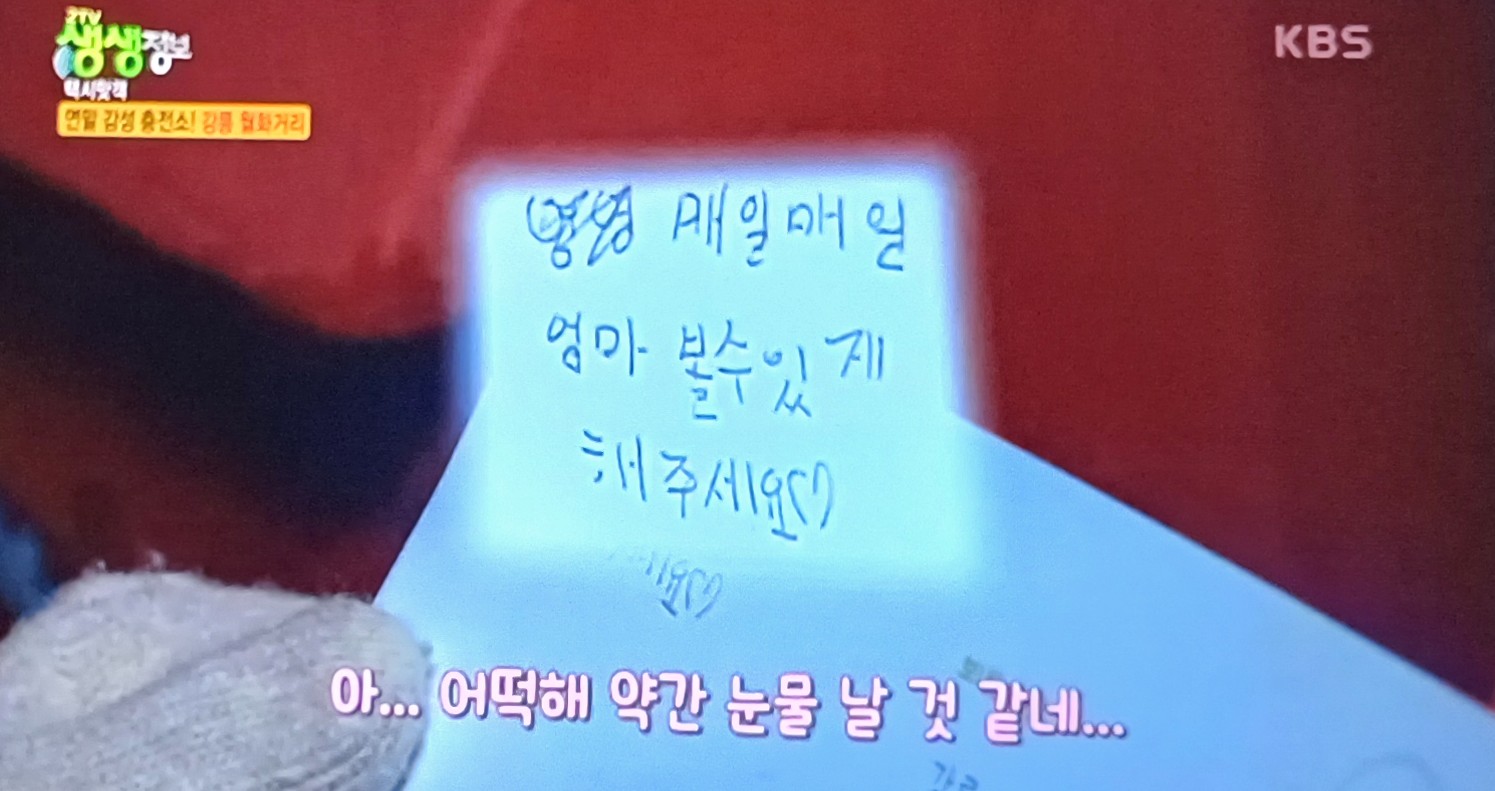 2TV
생생정보
택시핫객
연말 감성 충전소! 강릉 월화거리
KBS
매일매일
엄마 볼수있제
해주세요♡
아... 어떡해 약간 눈물 날 것 같네...